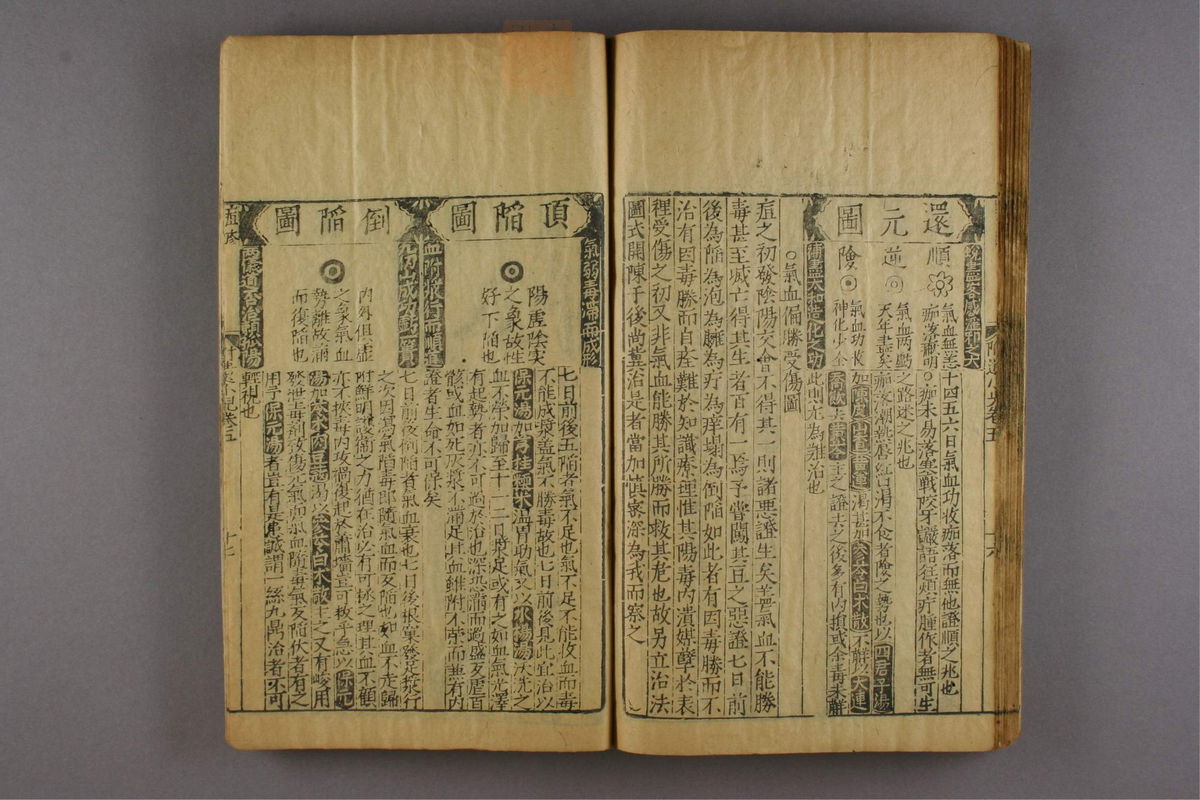 還元圖
順
氣血無恙十四五六日氣血功收痂落而無他證順之兆也
痂落瘢明○痂未易落寒戰咬牙讝語狂煩疔腫作者無可生
逆
氣血兩虧之路逆之兆也
天年盡矣痂落潮熱唇紅口渴不食者險之勢也以四君子湯
險
氣血功收加陳皮山查黃連渴甚加參苓白朮散不解以大連
神化少全翹飲去黃芩主之證去之後多有內損或余毒未解
補益太和造化之功
此則亦為難治也
○氣血偏勝受傷圖
痘之初發陰陽交會不得其一則諸惡證生矣若氣血不能勝
毒甚至減亡得其生者百有一焉予嘗閱其豆之惡證七日前
後為陷為泡為臃為疔為痒塌為倒陷如此者有因毒勝而不
治有因毒勝而自痊難於知識療理惟其陽毒內潰媒孽於表
裡受傷之初又非氣血能勝其所勝而救其危也故另立治法
圖式開陳于後尚冀治是者當加慎密深為戒而察之
頂陷圖
氣弱毒滯而成形
陽虛陰實
之象故性
好下陷也
七日前後五陷者氣不足也氣不足不能伎血而毒
不能成漿蓋氣不勝毒故也七日前後見此宜治以
保元湯加芎桂糯米溫胃助氣又以水楊湯沃洗之
血不榮加歸至十一二日漿足或有之如血氣光澤
有起勢者亦不可過於治也深恐滿而過盛反虐百
骸或血如死灰漿不滿足其血雖附不榮而兼有內
血附漿行而順還
證者生命不可保矣
倒陷圖
元功成效是寶
內外俱虛
之象氣血
勢離故滿
而復陷也
七日前後倒陷者氣血衰也七日後根窠發足漿行
之次因為氣陷毒即隨氣血而反陷也如血不走歸
附鮮明護衛之力猶在治以有可拯之理其血不顧
亦不挾毒內攻禍復起於蕭墻豈可救乎急以保元
湯加粟米肉豆蔻湯以參苓白朮散主之又有峻用
發泄毒劑故傷元氣而氣血隨毒氣反陷伏者有之
用于保元湯者豈有是患誠謂一絲九鼎治者不可
輕視也